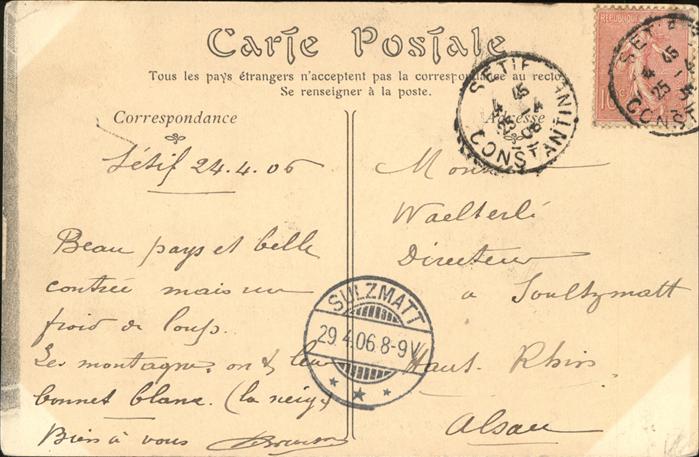 Carte Postale
Tous les pays étrangers n'acceptent pas la correspondance au recto
Se renseigner à la poste.
Correspondance
Adresse
Sétif 24.4.06
Beau pays et belle
contrée mais un
froid de loup.
Les montagnes ont leur
bonnet blanc. (la neige)
Bien à vous
Waelterlé
Directeur
a Soultzmatt
Haut Rhin
Alsace
SETIF
4 45
25 -4
06
CONSTANTINE
SULZMATT
29.4.06.8-9V.
10c
SETIF
4 45
25 -4